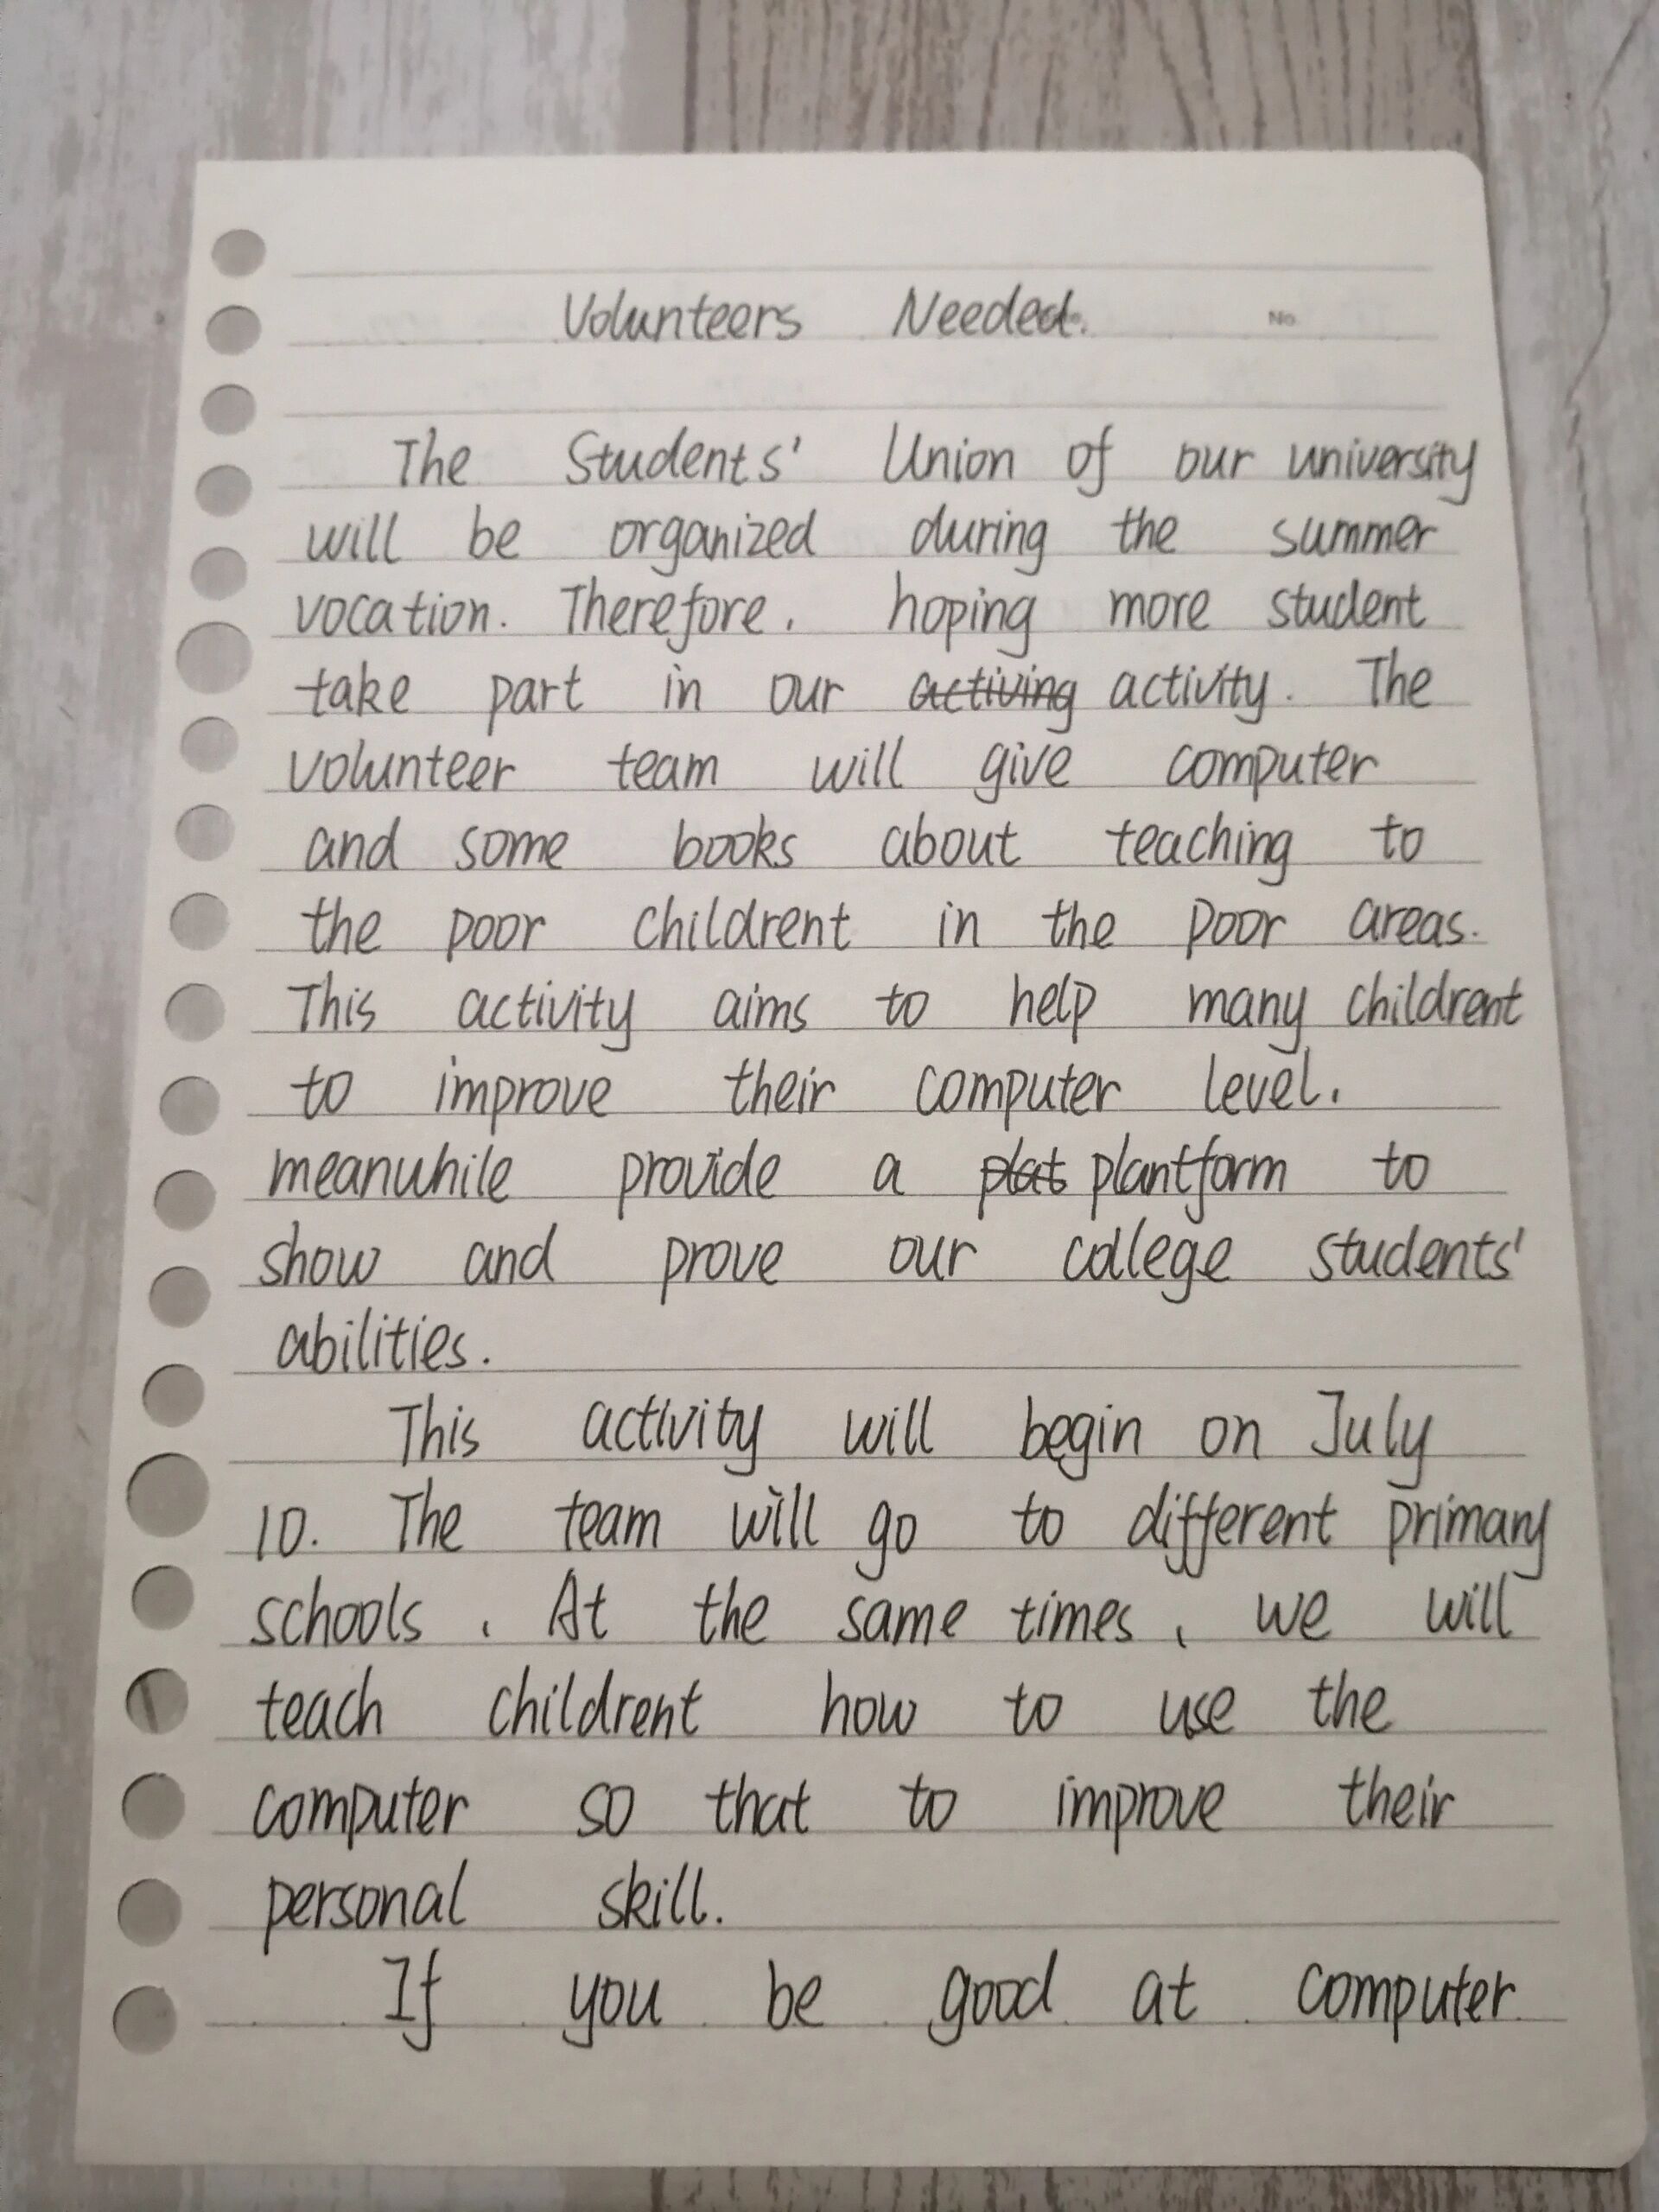 Volunteers Needed.
No.
The Students' Union of our university
will be organized during the summer
vocation. Therefore, hoping more student
take part in our activing activity. The
volunteer team will give computer
and some books about teaching to
the poor childrent in the poor areas.
This activity aims to help many childrent
to improve their computer level.
meanwhile provide a plat plantform to
show and prove our college students'
abilities.
This activity will begin on July
10. The team will go to different primary
schools. At the same times, we will
teach childrent how to use the
computer so that to improve their
personal skill.
If you be good at computer